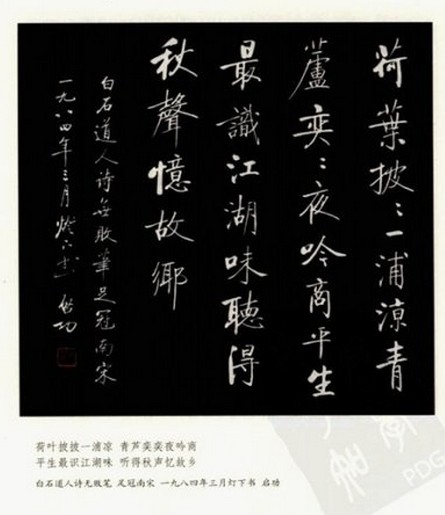 荷葉披〻一浦涼青
蘆奕〻夜吟商平生
最識江湖味聽得
秋聲憶故鄉
白石道人诗無敗筆足冠南宋
一九八四年三月燈下書 启功
荷叶披披一浦凉 青芦奕奕夜吟商
平生最识江湖味 听得秋声忆故乡
白石道人诗无败笔 足冠南宋 一九八四年三月灯下书 启功
PDG